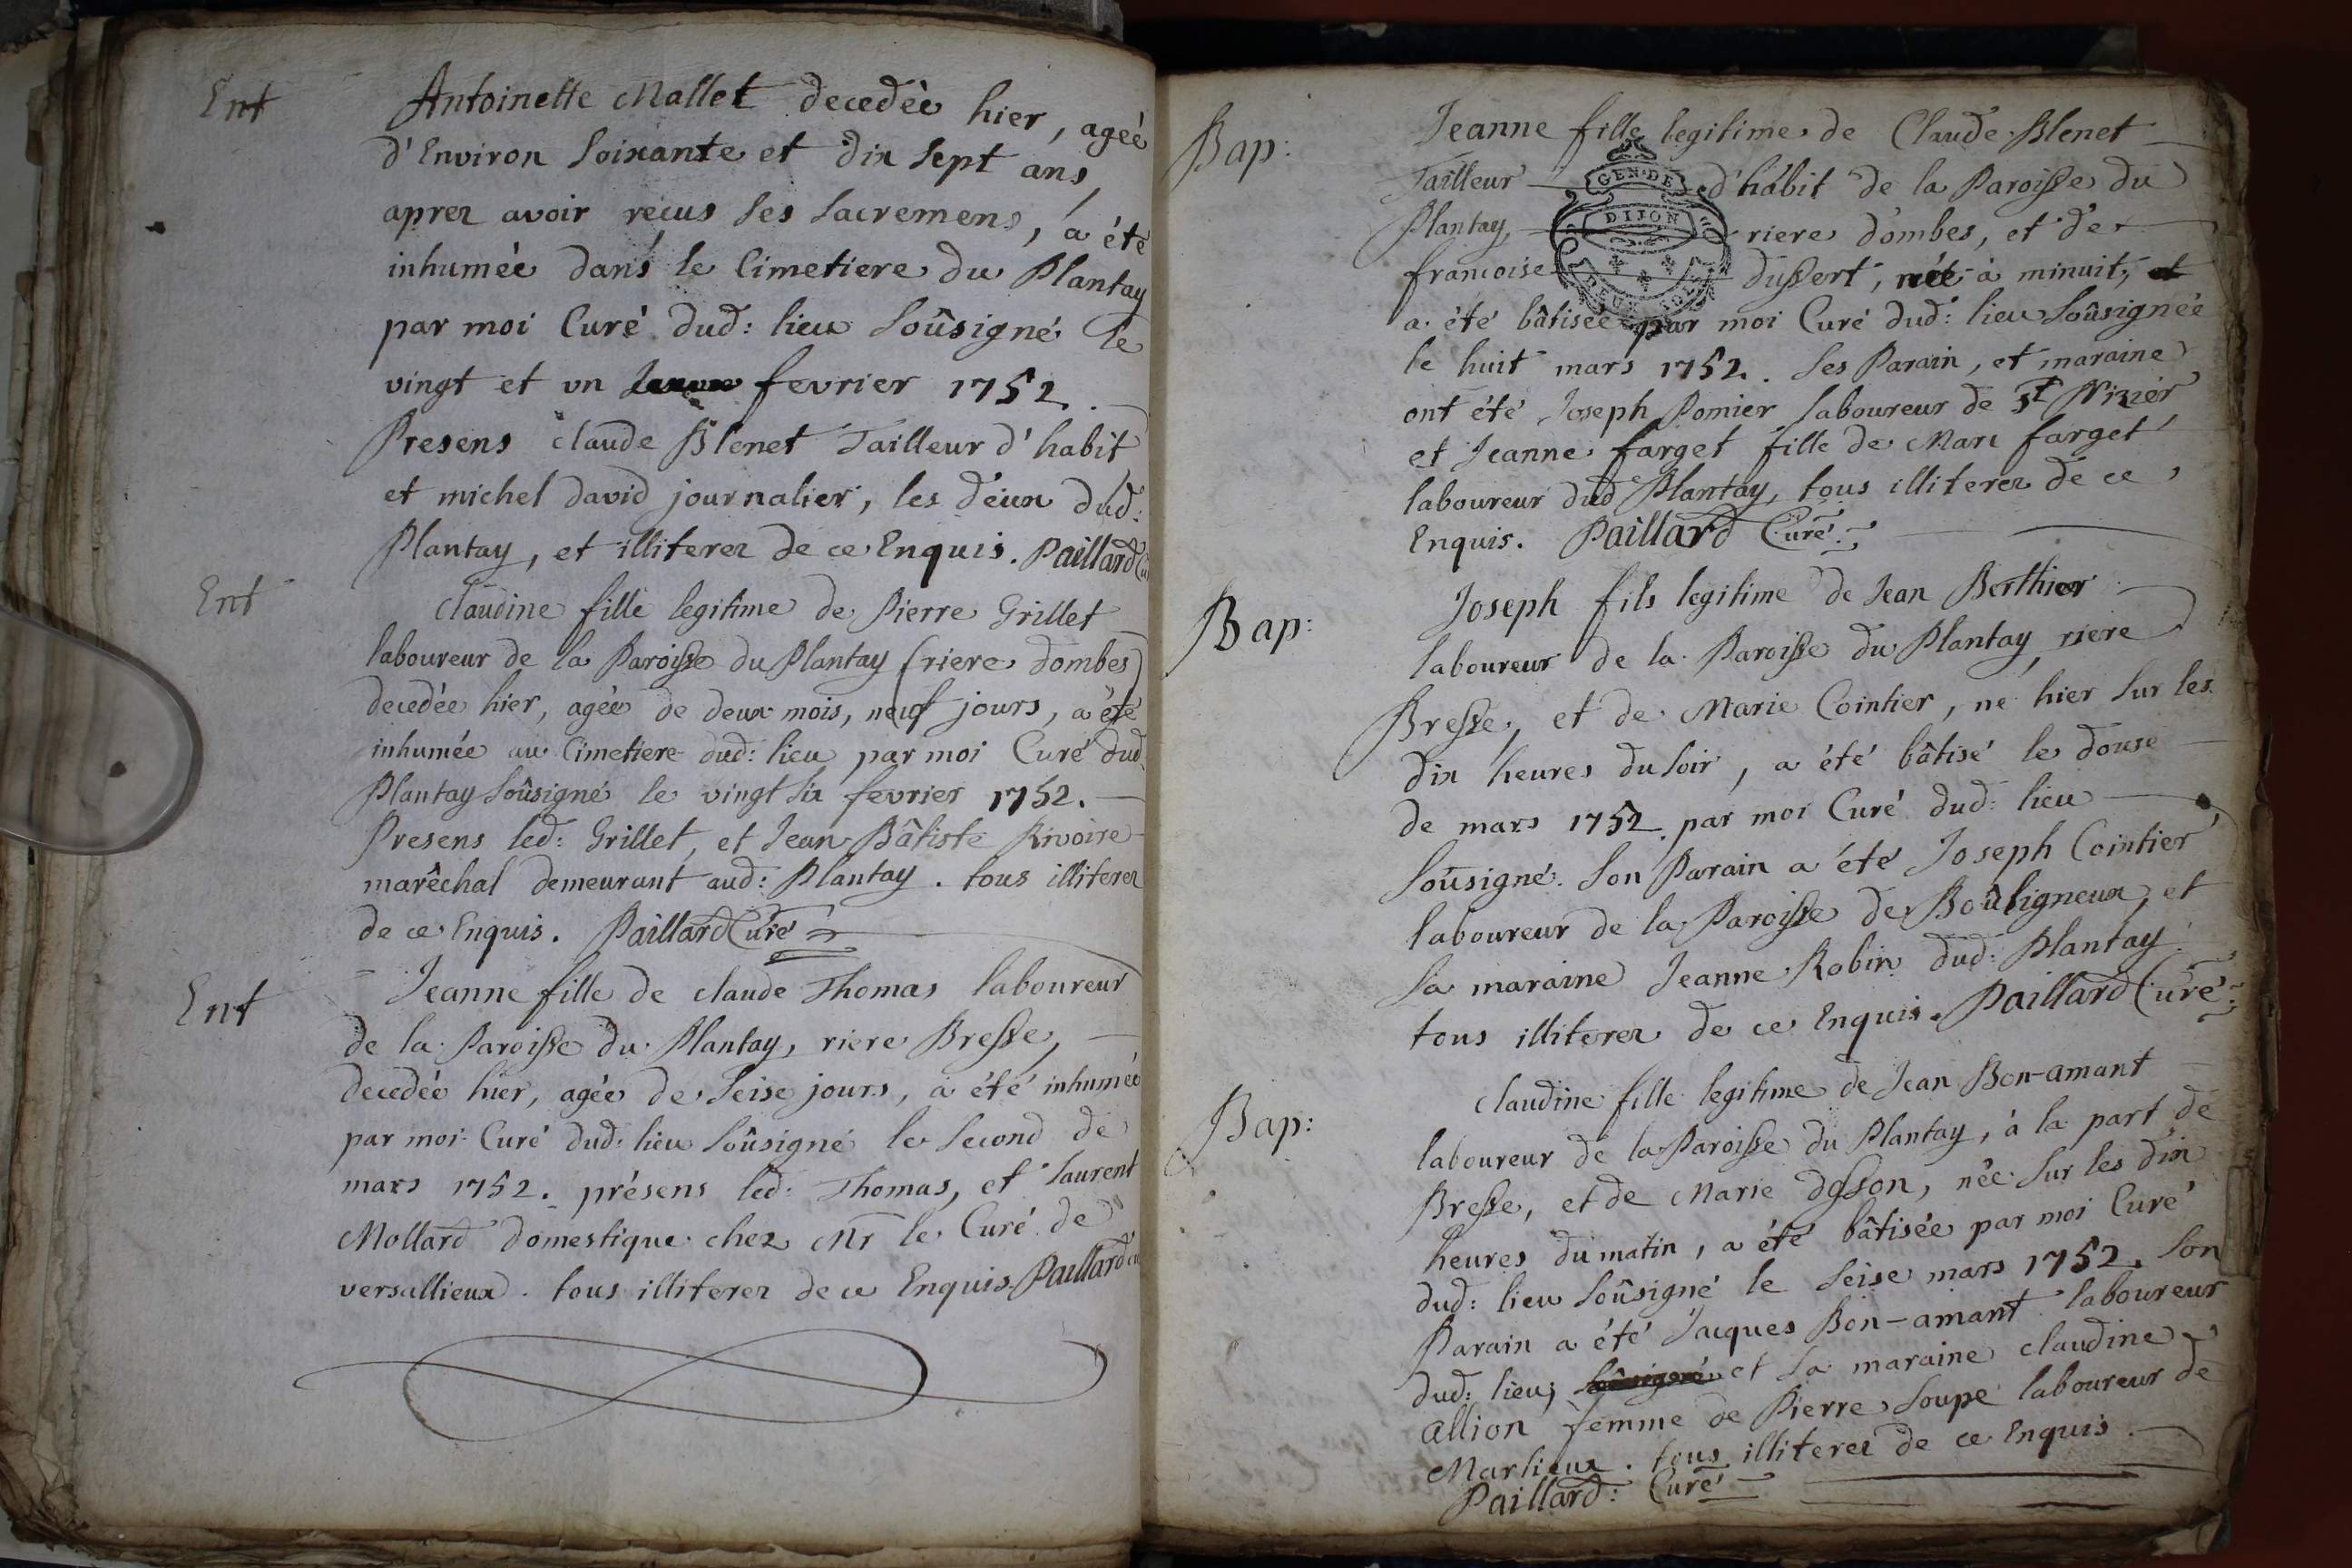 Ent
Antoinette Mallet decedèe hier, ageè
d'Environ soixante et dix sept ans,
aprez avoir reçus ses sacremens, a été
inhumée dans le Cimetiere du Plantay
par moi Curé dud: lieu soûsigné le
vingt et un fevrier 1752.
Presens claude Blenet Tailleur d'habit
et michel david journalier, les deux dud:
Plantay, et illiterez de ce Enquis. Paillard Cu
Ent
Claudine fille legitime de Pierre Grillet
laboureur de la Paroisse du Plantay (riere dombes)
decedée hier, agée de deux mois, neuf jours, a été
inhumée au Cimetiere dud: lieu par moi Curé dud
Plantay soûsigné le vingt six fevrier 1752.
Presens led: Grillet, et Jean Bâtiste Rivoire
marêchal demeurant aud: Plantay. tous illiterez
de ce Enquis. Paillard Curé
Ent
Jeanne fille de claude Thomas laboureur
de la Paroisse du Plantay, riere Bresse,
decedée hier, agée de seise jours, a été inhumée
par moi Curé dud: lieu soûsigné le second de
mars 1752. présens led: Thomas, et laurent
Mollard domestique chez Mr le Curé de
versallieux. tous illiterez de ce Enquis Paillard cu
Bap:
Jeanne fille legitime de Claude Blenet
Tailleur d'hábit de la Paroisse du
Plantay, riere dombes, et de
francoise dussert, née à minuit, et
a été bâtisée par moi Curé dud: lieu soûsignée
le huit mars 1752. Ses Parain, et maraine
ont été Joseph Pomier laboureur de St Nizier
et Jeanne farget fille de Marc farget
laboureur dud Plantay, tous illiterez de ce
Enquis. Paillard Curé
GEN. DE
DIJON
DEUX SOLS
Bap:
Joseph fils legitime de Jean Berthier
laboureur de la Paroisse du Plantay riere
Bresse, et de Marie Cointier, ne hier sur les
dix heures du soir, a été bâtisé le douse
de mars 1752 par moi Curé dud: lieu
soûsigné. Son Parain a été Joseph Cointier
laboureur de la Paroisse de Boûligneux, et
sa maraine Jeanne Robin dud: Plantay
tous illiterez de ce Enquis. Paillard Curé
Bap:
claudine fille legitime de Jean Bon-amant
laboureur de la Paroisse du Plantay, à la part de
Bresse, et de Marie née sur les dix
heures du matin, a été bâtisée par moi Curé
dud: lieu soûsigné le seise mars 1752. Son
Parain a été Jacques Bon-amant laboureur
dud: lieu, soûsigné et sa maraine claudine
allion femme de Pierre Soupe laboureur de
Marlieux. tous illiterez de ce Enquis.
Paillard: Curé